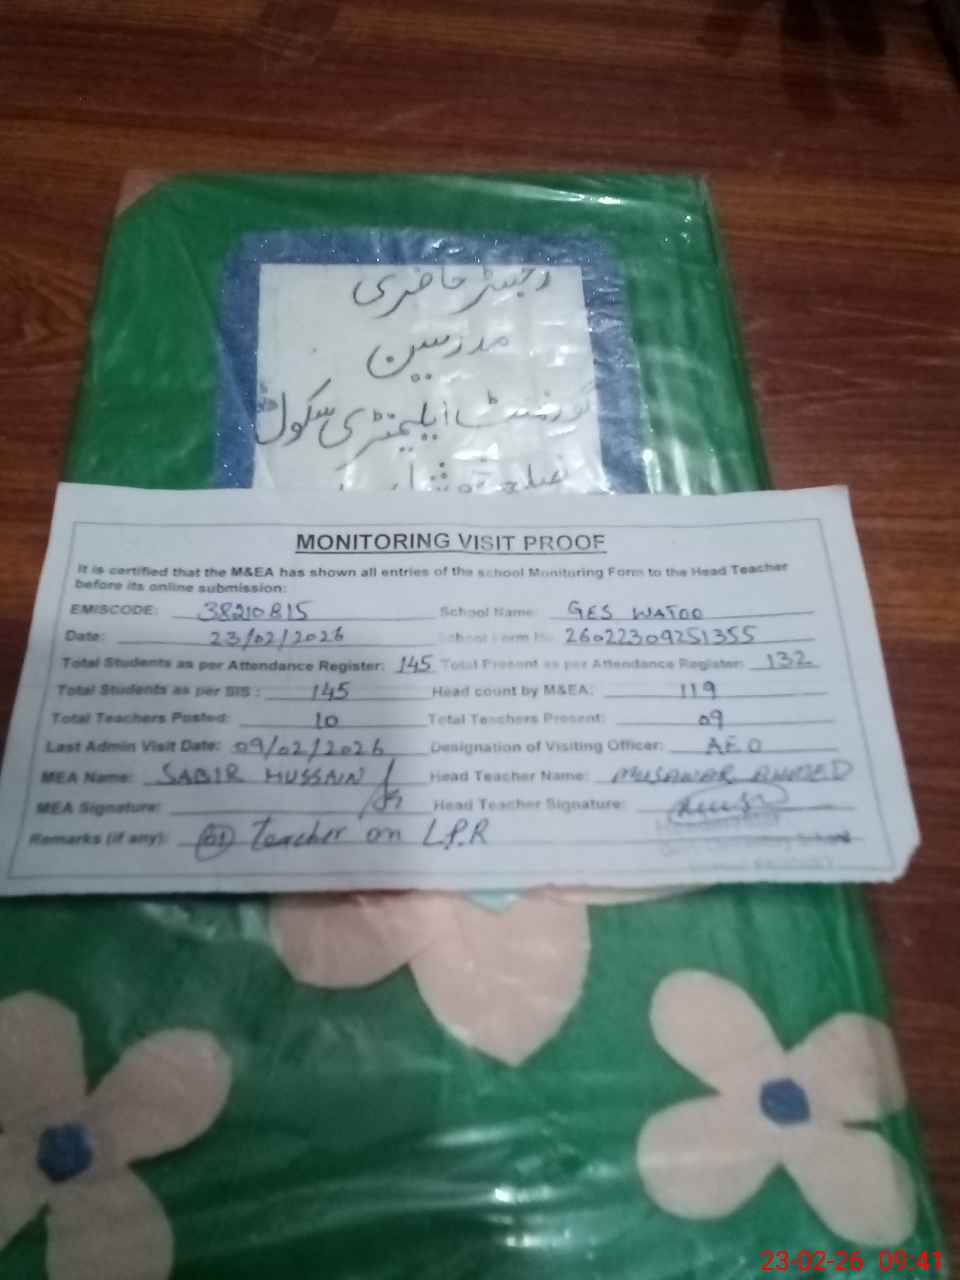 رجسٹر حاضری
مدرسین
گورنمنٹ ایلیمنٹری سکول
ضلع خوشاب
MONITORING VISIT PROOF
It is certified that the M&EA has shown all entries of the school Monitoring Form to the Head Teacher
before its online submission:
EMISCODE: 38210815 School Name: GES WATOO
Date: 23/02/2026 School Form No. 26022309251355
Total Students as per Attendance Register: 145 Total Present as per Attendance Register: 132
Total Students as per SIS : 145 Head count by M&EA: 119
Total Teachers Posted: 10 Total Teachers Present: 09
Last Admin Visit Date: 09/02/2026 Designation of Visiting Officer: AEO
MEA Name: SABIR HUSSAIN Head Teacher Name: MUSAWAR AHMED
MEA Signature: Head Teacher Signature:
Remarks (if any): 01 Teacher on L.P.R
23-02-26 09:41